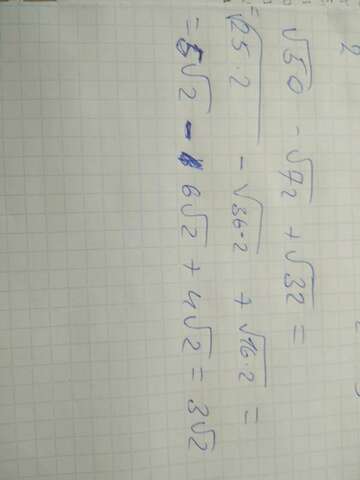 2
√50 - √72 + √32 =
= √25·2 - √36·2 + √16·2 =
= 5√2 - 6√2 + 4√2 = 3√2